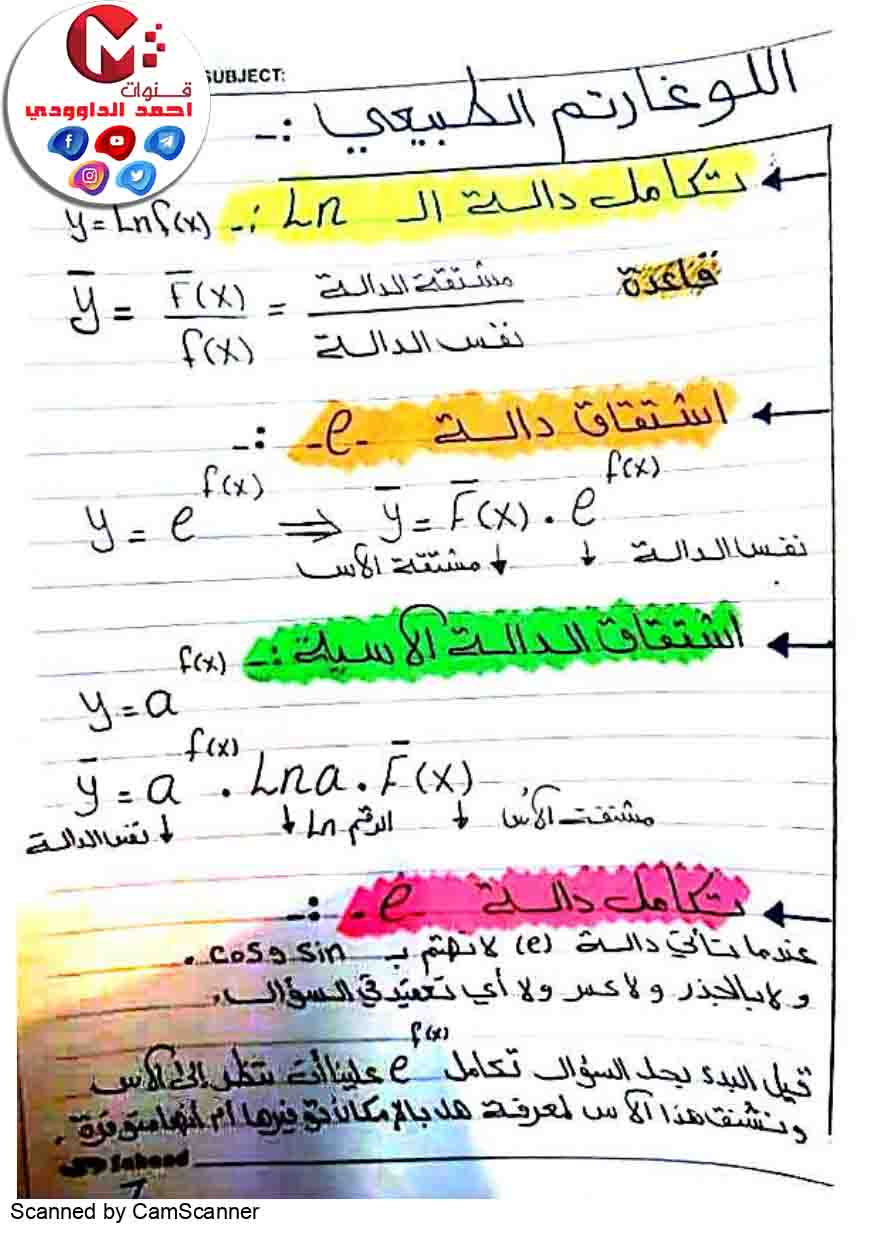 قنوات
احمد الداوودي
SUBJECT:
اللوغارتم الطبيعي :-
تكامل دالة الـ Ln :- y = Ln f(x)
قاعدة
ȳ = F̄(x) / f(x) = مشتقة الدالة / نفس الدالة
اشتقاق دالة -e- :-
y = e^f(x) ⇒ ȳ = F̄(x) . e^f(x)
مشتقة الأس ↓ ↓ نفس الدالة
اشتقاق الدالة الأسية :-
y = a^f(x)
ȳ = a^f(x) . Lna . F̄(x)
نفس الدالة ↓ ↓ Ln الرقم ↓ مشتقة الأس
تكامل دالة e- :-
عندما تأتي دالة (e) لا نهتم بـ sin و cos .
ولا بالجذر ولا كسر ولا أي تعقيد في السؤال .
قبل البدء بحل السؤال تكامل e^f(x) علينا أن ننظر إلى الأس
ونشتق هذا الأس لمعرفة هل بالإمكان توفيرها أم أنها متوفرة .
Scanned by CamScanner